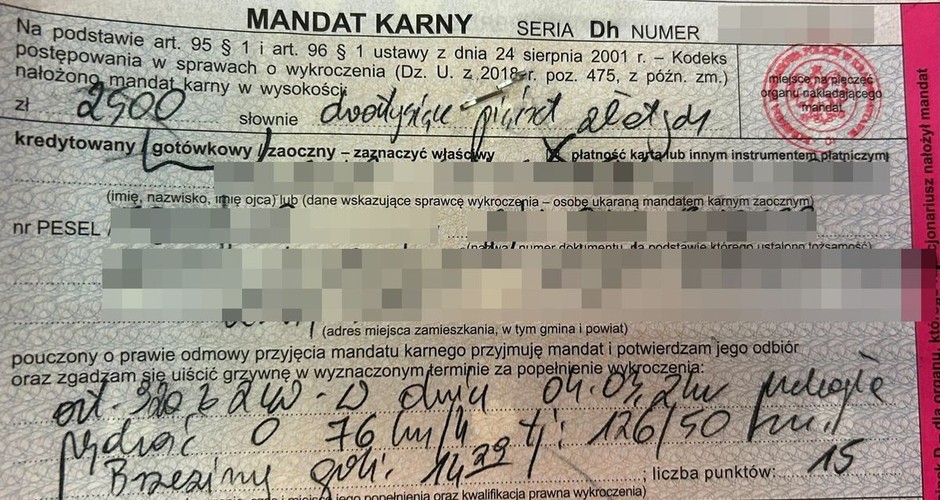 MANDAT KARNY SERIA Dh NUMER
Na podstawie art. 95 § 1 i art. 96 § 1 ustawy z dnia 24 sierpnia 2001 r. – Kodeks
postępowania w sprawach o wykroczenia (Dz. U. z 2018 r. poz. 475, z późn. zm.)
nałożono mandat karny w wysokości
miejsce na pieczęć
organu nakładającego
mandat
zł 2500 słownie dwa tysiące pięćset złotych
kredytowany gotówkowy zaoczny – zaznaczyć właściwy X płatność kartą lub innym instrumentem płatniczym
(imię, nazwisko, imię ojca) lub (dane wskazujące sprawcę wykroczenia – osobę ukaraną mandatem karnym zaocznym)
nr PESEL /
numer dokumentu, na podstawie którego ustalono tożsamość)
(adres miejsca zamieszkania, w tym gmina i powiat)
pouczony o prawie odmowy przyjęcia mandatu karnego przyjmuję mandat i potwierdzam jego odbiór
oraz zgadzam się uiścić grzywnę w wyznaczonym terminie za popełnienie wykroczenia:
art. w dniu 04.03.24
prędkość o 76 km/h tj. 126/50 km/h
Brzeziny godz. 14 29 ; liczba punktów: 15
popełnienia oraz kwalifikacja prawna wykroczenia)
cjonariusz nałożył mandat
dla organu, któr